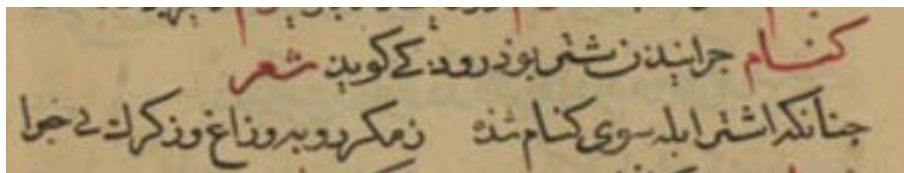 کنام جرانیدن شتر بوذ رودکی کوید شعر
جنانکه اشتر ابله سوی کنام شذه ز مکر روبه و زاغ و ز کرک بی خبرا